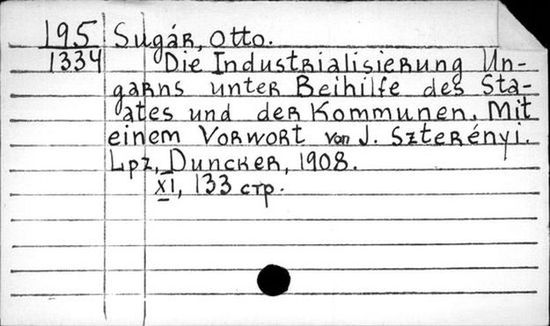 195 Sugár, Otto.
1334 Die Industrialisierung Un-
garns unter Beihilfe des Sta-
ates und der Kommunen. Mit
einem Vorwort von J. Szterényi.
Lpz, Duncker, 1908.
XI, 133 стр.